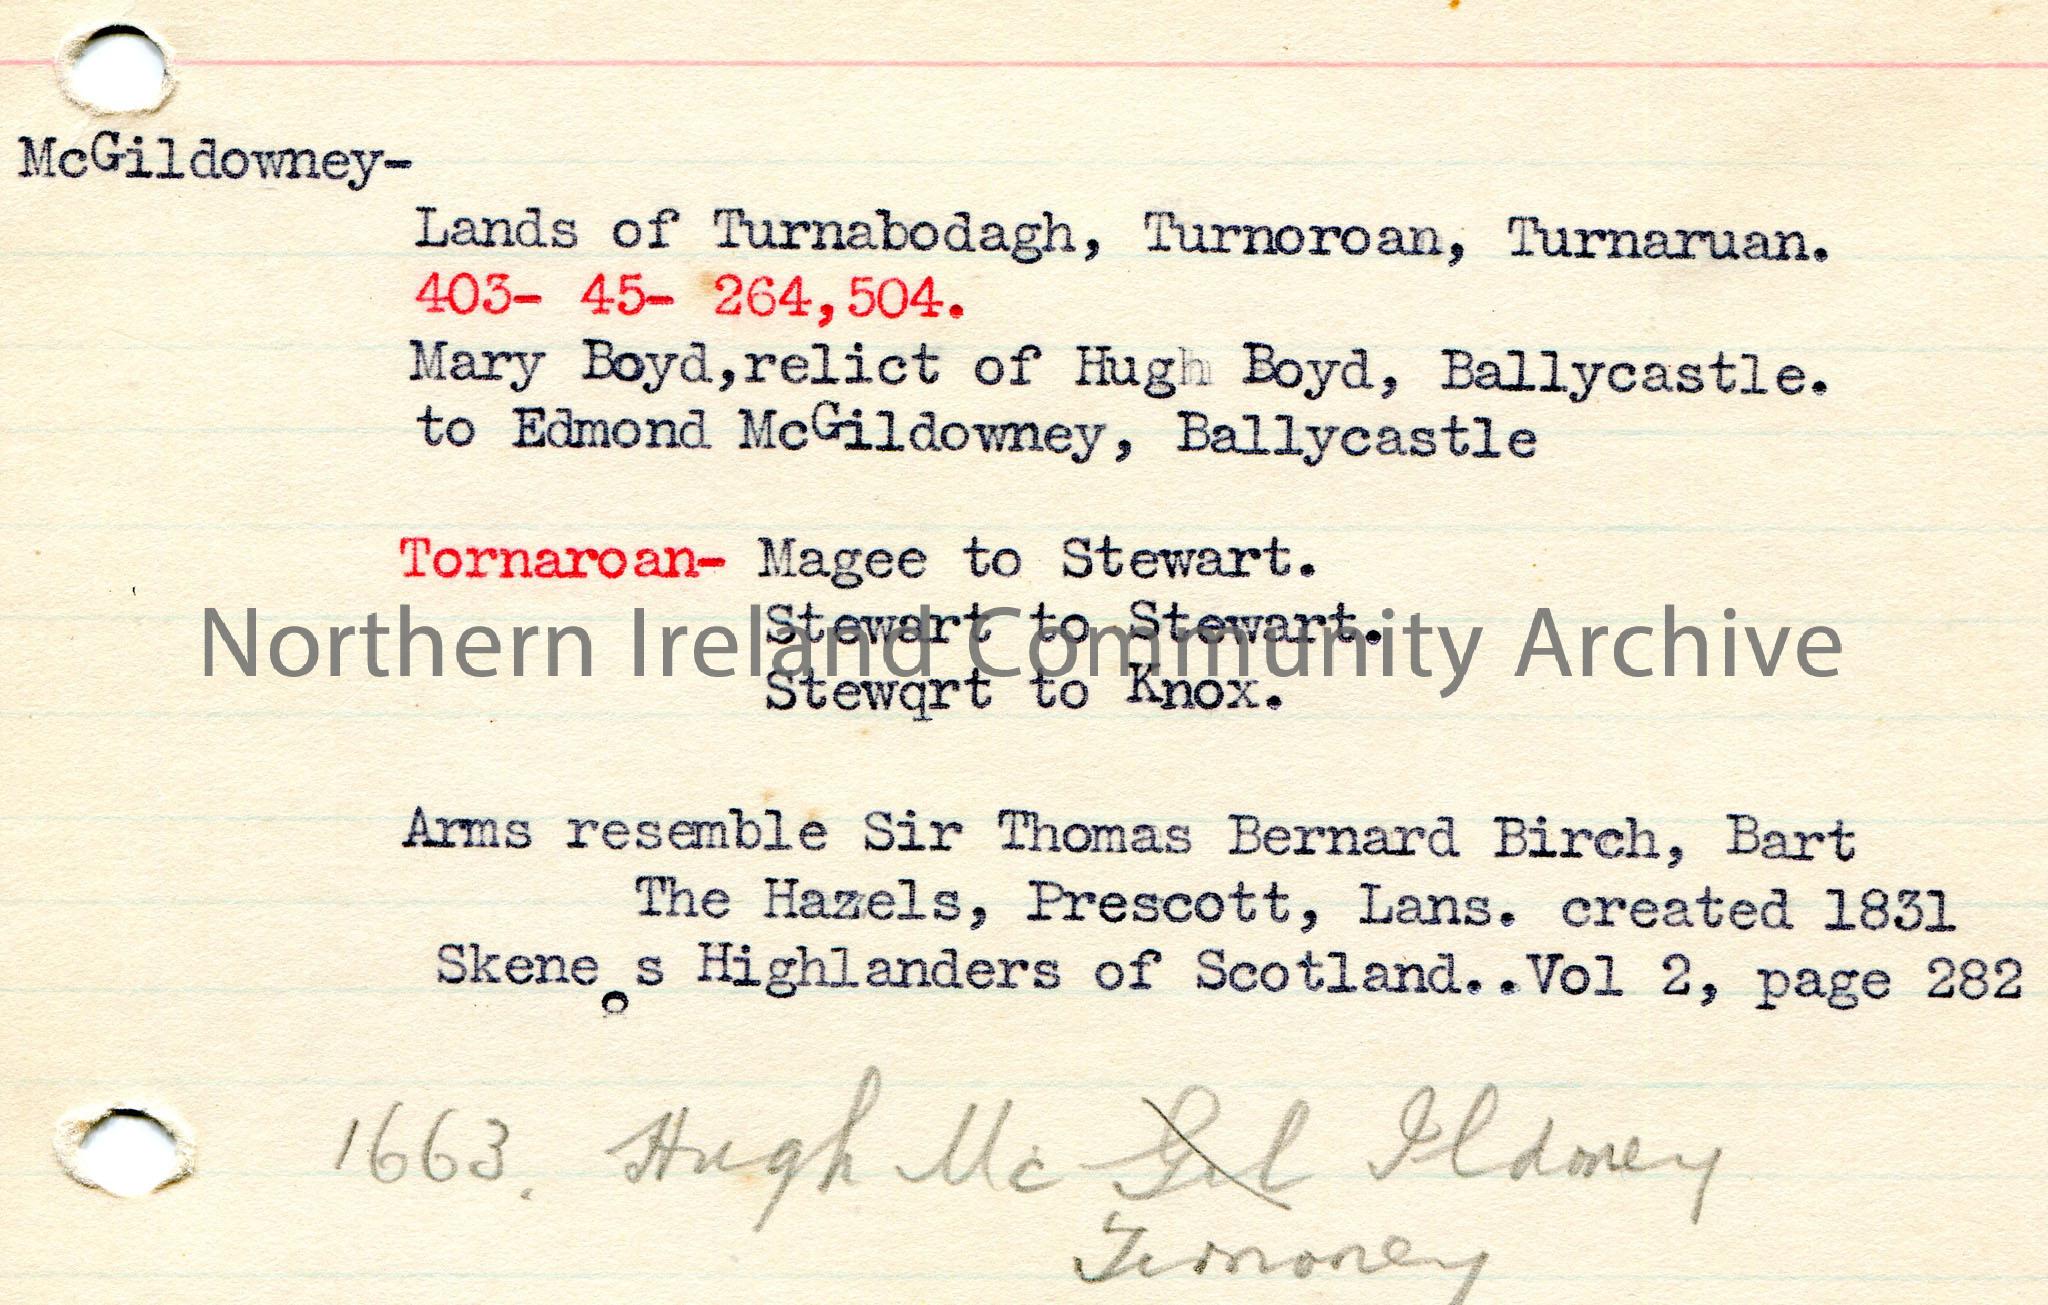 McGildowney-
Lands of Turnabodagh, Turnoroan, Turnaruan.
403- 45- 264,504.
Mary Boyd,relict of Hugh Boyd, Ballycastle.
to Edmond McGildowney, Ballycastle
Tornaroan- Magee to Stewart.
Stewart to Stewart.
Northern Ireland Community Archive
Stewqrt to Knox.
Arms resemble Sir Thomas Bernard Birch, Bart
The Hazels, Prescott, Lans. created 1831
Skene s Highlanders of Scotland..Vol 2, page 282
1663. Hugh Mc Gil Ildoney